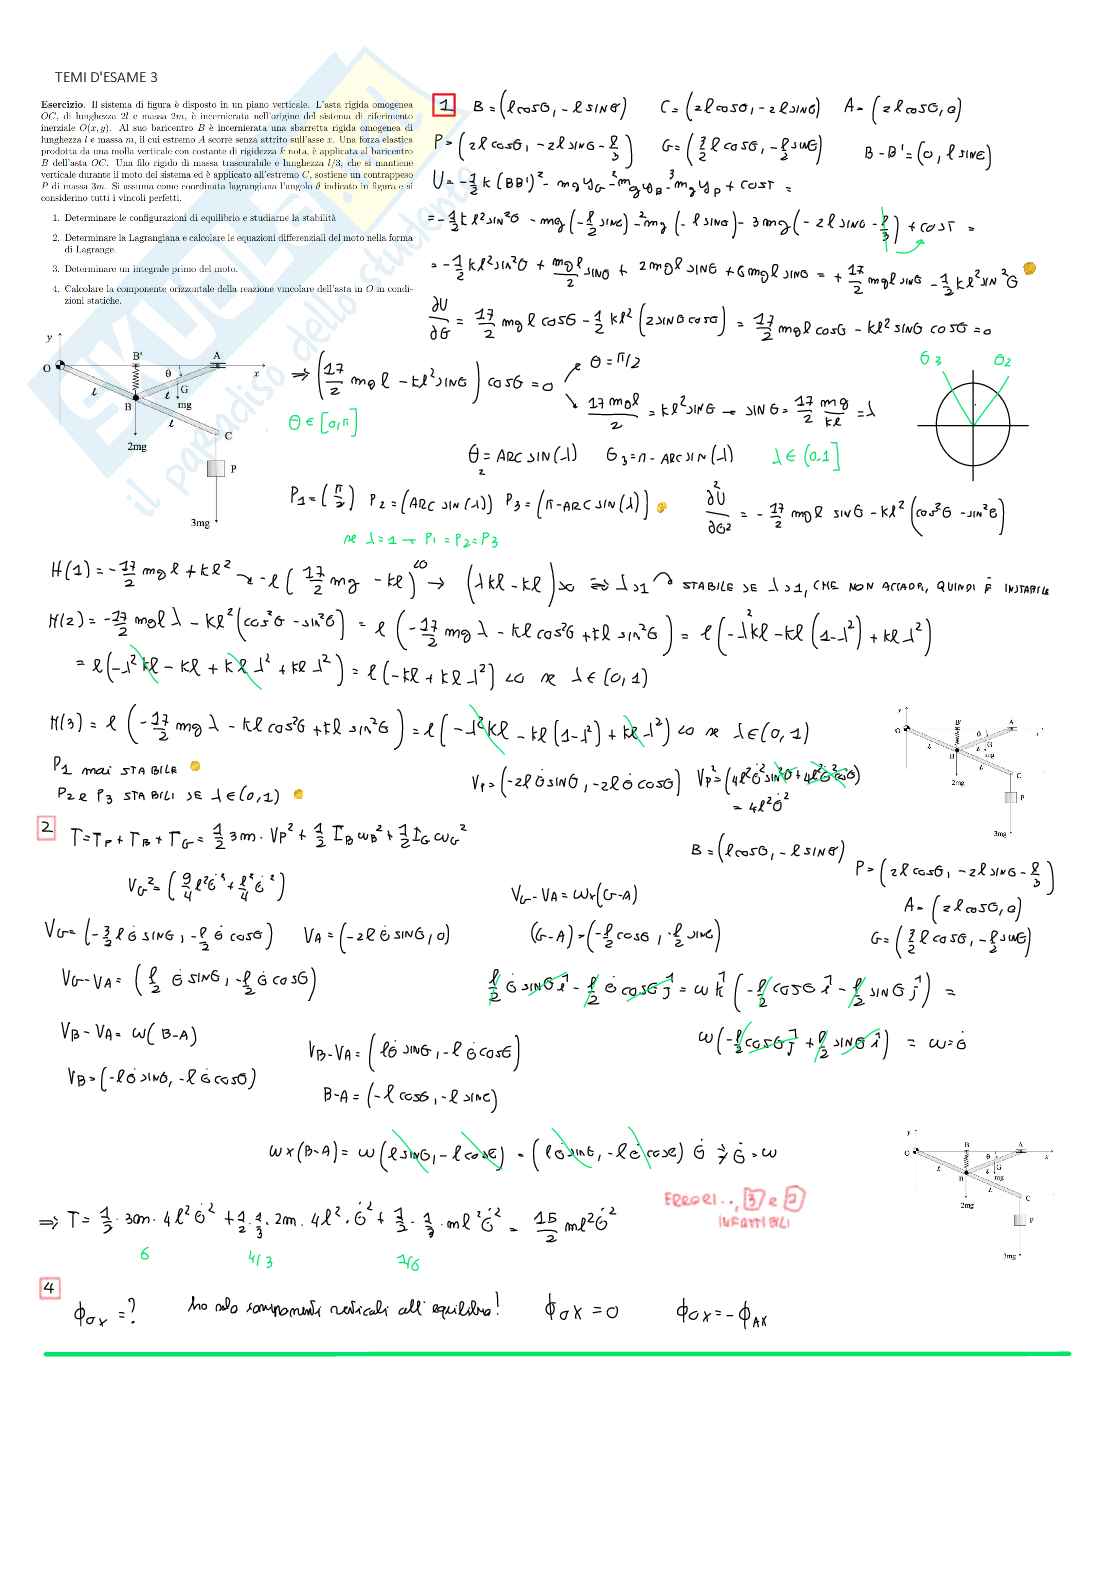 TEMI D'ESAME 3
Esercizio. Il sistema di figura è disposto in un piano verticale. L'asta rigida omogenea
OC, di lunghezza 2l e massa 2m, è incernierata nell'origine del sistema di riferimento
inerziale O(x, y). Al suo baricentro B è incernierata una sbarretta rigida omogenea di
lunghezza l e massa m, il cui estremo A scorre senza attrito sull'asse x. Una forza elastica
prodotta da una molla verticale con costante di rigidezza k nota, è applicata al baricentro
B dell'asta OC. Una filo rigido di massa trascurabile e lunghezza l/3, che si mantiene
verticale durante il moto del sistema ed è applicato all'estremo C, sostiene un contrappeso
P di massa 3m. Si assuma come coordinata lagrangiana l'angolo θ indicato in figura e si
considerino tutti i vincoli perfetti.
1. Determinare le configurazioni di equilibrio e studiarne la stabilità
2. Determinare la Lagrangiana e calcolare le equazioni differenziali del moto nella forma
di Lagrange.
3. Determinare un integrale primo del moto.
4. Calcolare la componente orizzontale della reazione vincolare dell'asta in O in condi-
zioni statiche.
1 B=(l cosθ, -l sinθ) C=(2l cosθ, -2l sinθ) A=(2l cosθ, 0)
P=(2l cosθ, -2l sinθ - l/3) G=(3/2 l cosθ, -l/2 sinθ) B-B'=(0, l sinθ)
U=-1/2 k(BB')² - mg y_G - 2mg y_B - 3mg y_P + cost =
=-1/2 k l² sin²θ - mg(-l/2 sinθ) - 2mg(-l sinθ) - 3mg(-2l sinθ - l/3) + cost =
=-1/2 k l² sin²θ + mgl/2 sinθ + 2mgl sinθ + 6mgl sinθ = +17/2 mgl sinθ - 1/2 k l² sin²θ
∂U/∂θ = 17/2 mgl cosθ - 1/2 k l² (2 sinθ cosθ) = 17/2 mgl cosθ - k l² sinθ cosθ = 0
⇒ (17/2 mgl - k l² sinθ) cosθ = 0
θ = π/2
17mgl/2 = k l² sinθ → sinθ = 17/2 mg/kl = λ
θ ∈ [0, π]
θ₂ = ARCSIN(λ) θ₃ = π - ARCSIN(λ) λ ∈ (0,1]
θ3 θ2
y B' A O θ x l G B l mg l C 2mg P 3mg
P1=(π/2) P2=(ARCSIN(λ)) P3=(π-ARCSIN(λ))
∂²U/∂θ² = -17/2 mgl sinθ - k l² (cos²θ - sin²θ)
se λ=1 → P1=P2=P3
H(1) = -17/2 mgl + kl² → -l(17/2 mg - kl) <0 → (λkl - kl) >0 ⇒ λ>1 → STABILE SE λ>1, CHE NON ACCADR, QUINDI È INSTABILE
H(2) = -17/2 mgl λ - kl²(cos²θ - sin²θ) = l(-17/2 mg λ - kl cos²θ + kl sin²θ) = l(-λ²kl - kl(1-λ²) + kl λ²)
= l(-λ²kl - kl + kl λ² + kl λ²) = l(-kl + kl λ²) <0 se λ ∈ (0,1)
H(3) = l(-17/2 mg λ - kl cos²θ + kl sin²θ) = l(-λ²kl - kl(1-λ²) + kl λ²) <0 se λ ∈ (0,1)
P1 mai STABILE
P2 e P3 STABILI SE λ ∈ (0,1)
V_P=(-2l θ̇ sinθ, -2l θ̇ cosθ) V_P²=(4l²θ̇² sin²θ + 4l²θ̇² cos²θ)
= 4l²θ̇²
y B' A O θ l G B l mg l C 2mg P 3mg
2 T=T_P+T_B+T_G = 1/2 3m·V_P² + 1/2 I_B ω_B² + 1/2 I_G ω_G²
B=(l cosθ, -l sinθ)
P=(2l cosθ, -2l sinθ - l/3)
A=(2l cosθ, 0)
G=(3/2 l cosθ, -l/2 sinθ)
V_G²=(9/4 l²θ̇² + l²/4 θ̇²)
V_G - V_A = ω×(G-A)
V_G=(-3/2 l θ̇ sinθ, -l/2 θ̇ cosθ) V_A=(-2l θ̇ sinθ, 0) (G-A)=(-l/2 cosθ, -l/2 sinθ)
V_G - V_A = (l/2 θ̇ sinθ, -l/2 θ̇ cosθ)
l/2 θ̇ sinθ i - l/2 θ̇ cosθ j = ω k (-l/2 cosθ i - l/2 sinθ j) =
V_B - V_A = ω(B-A)
ω(-l/2 cosθ j + l/2 sinθ i) = ω=θ̇
V_B=(-lθ̇ sinθ, -lθ̇ cosθ)
V_B - V_A = (lθ̇ sinθ, -lθ̇ cosθ)
B-A=(-l cosθ, -l sinθ)
ω×(B-A) = ω(l sinθ, -l cosθ) = (lθ̇ sinθ, -lθ̇ cosθ) θ̇ ⇒ θ̇=ω
y B A O θ x G B mg l C 2mg P 3mg
⇒ T = 1/2 · 3m · 4l²θ̇² + 1/2 · 1/3 · 2m · 4l² · θ̇² + 1/2 · 1/3 · ml²θ̇² = 15/2 ml²θ̇²
6 4/3 1/6
ERRORI.., 3 e 2
INFATTIBILI
4 ϕ_OX =? ho solo componenti verticali all'equilibrio! ϕ_OX = 0 ϕ_OX = -ϕ_AX
SKUOLA
il paradiso dello studente